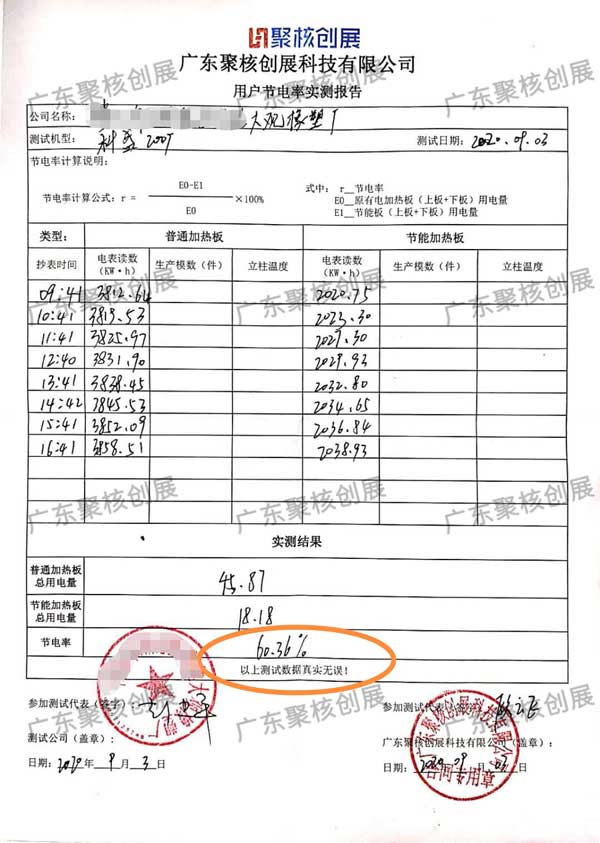 聚核创展
广东聚核创展科技有限公司
用户节电率实测报告
公司名称: 大观橡塑厂
测试机型: 科盛200T 测试日期: 2020.09.03
节电率计算说明:
节电率计算公式: r = E0-E1 / E0 ×100%
式中: r__节电率
E0__原有电加热板(上板+下板)用电量
E1__节能板(上板+下板)用电量
类型: 普通加热板 节能加热板
抄表时间 电表读数(KW·h) 生产模数(件) 立柱温度 电表读数(KW·h) 生产模数(件) 立柱温度
09:41 3812.64 2020.75
10:41 3819.53 2023.30
11:41 3825.97 2027.30
12:40 3831.90 2029.93
13:41 3838.45 2032.80
14:42 3845.53 2034.65
15:41 3852.09 2036.84
16:41 3858.51 2038.93
实测结果
普通加热板总用电量 45.87
节能加热板总用电量 18.18
节电率 60.36%
以上测试数据真实无误!
参加测试代表(签字): 参加测试代表(签字):
测试公司(盖章): 广东聚核创展科技有限公司(盖章):
日期: 2020年9月3日 日期: 2020年09月03日
广东聚核创展科技有限公司
合同专用章
广东聚核创展
广东聚核创展
广东聚核创展
广东聚核创展
广东聚核创展
广东聚核创展
广东聚核创展
广东聚核创展